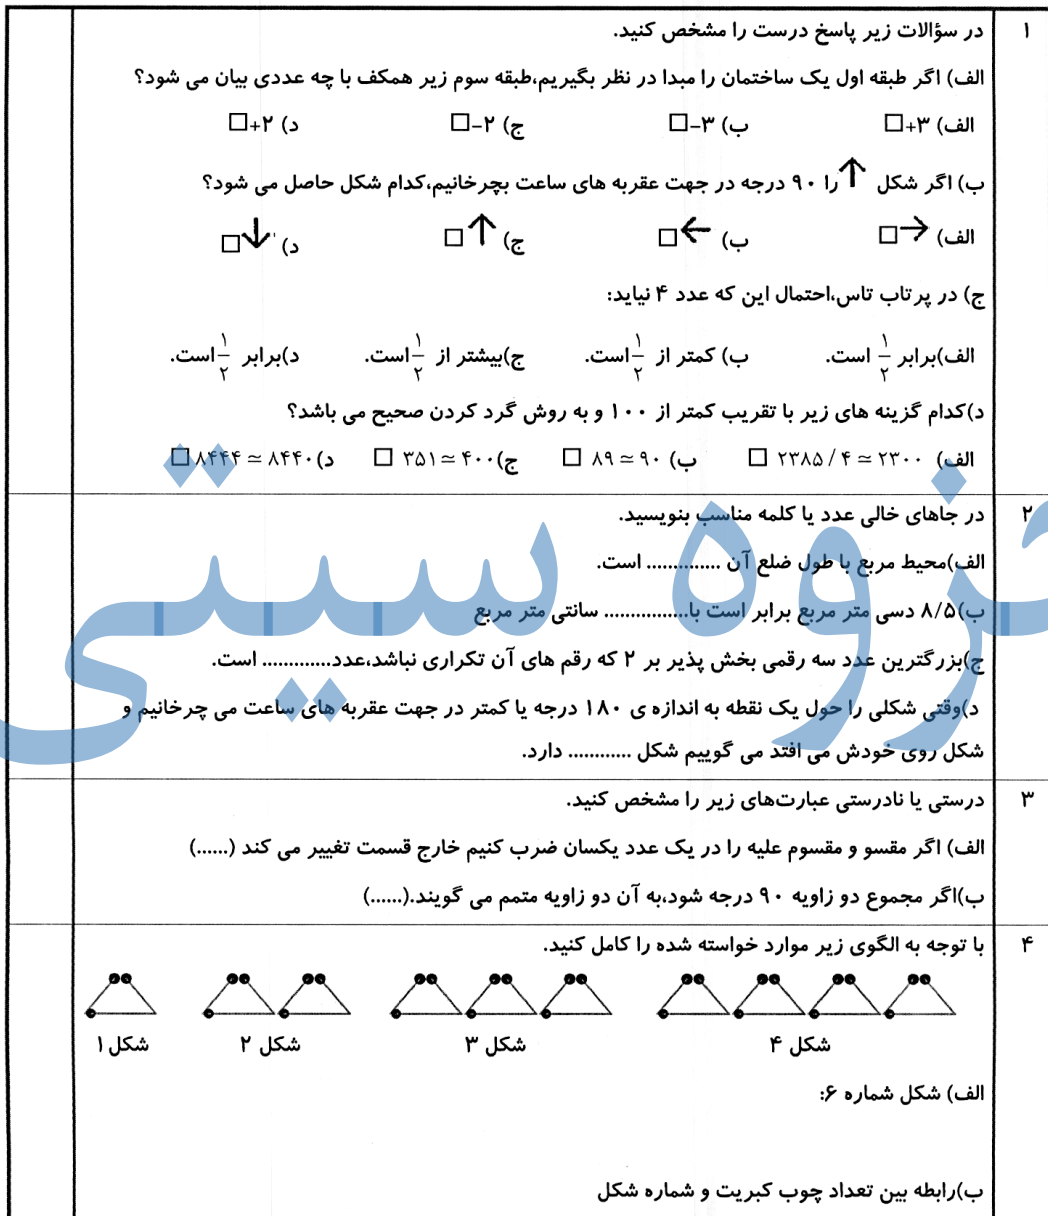 ۱ در سؤالات زیر پاسخ درست را مشخص کنید.
الف) اگر طبقه اول یک ساختمان را مبدا در نظر بگیریم،طبقه سوم زیر همکف با چه عددی بیان می شود؟
الف) +۳□ ب) −۳□ ج) −۲□ د) +۲□
ب) اگر شکل ↑ را ۹۰ درجه در جهت عقربه های ساعت بچرخانیم،کدام شکل حاصل می شود؟
الف) →□ ب) ←□ ج) ↑□ د) ↓□
ج) در پرتاب تاس،احتمال این که عدد ۴ نیاید:
الف)برابر ۱/۲ است. ب) کمتر از ۱/۲ است. ج)بیشتر از ۱/۲ است. د)برابر ۱/۲ است.
د)کدام گزینه های زیر با تقریب کمتر از ۱۰۰ و به روش گرد کردن صحیح می باشد؟
الف) ۲۳۸۵/۴ ≃ ۲۳۰۰ □ ب) ۸۹ ≃ ۹۰ □ ج) ۳۵۱ ≃ ۴۰۰ □ د) ۸۴۴۴ ≃ ۸۴۴۰ □
۲ در جاهای خالی عدد یا کلمه مناسب بنویسید.
الف)محیط مربع با طول ضلع آن .............. است.
ب)۸/۵ دسی متر مربع برابر است با................ سانتی متر مربع
ج)بزرگترین عدد سه رقمی بخش پذیر بر ۲ که رقم های آن تکراری نباشد،عدد............. است.
د)وقتی شکلی را حول یک نقطه به اندازه ی ۱۸۰ درجه یا کمتر در جهت عقربه های ساعت می چرخانیم و
شکل روی خودش می افتد می گوییم شکل ............ دارد.
۳ درستی یا نادرستی عبارت‌های زیر را مشخص کنید.
الف) اگر مقسو و مقسوم علیه را در یک عدد یکسان ضرب کنیم خارج قسمت تغییر می کند (......)
ب)اگر مجموع دو زاویه ۹۰ درجه شود،به آن دو زاویه متمم می گویند.(......)
۴ با توجه به الگوی زیر موارد خواسته شده را کامل کنید.
شکل ۱ شکل ۲ شکل ۳ شکل ۴
الف) شکل شماره ۶:
ب)رابطه بین تعداد چوب کبریت و شماره شکل
زوه سیتی